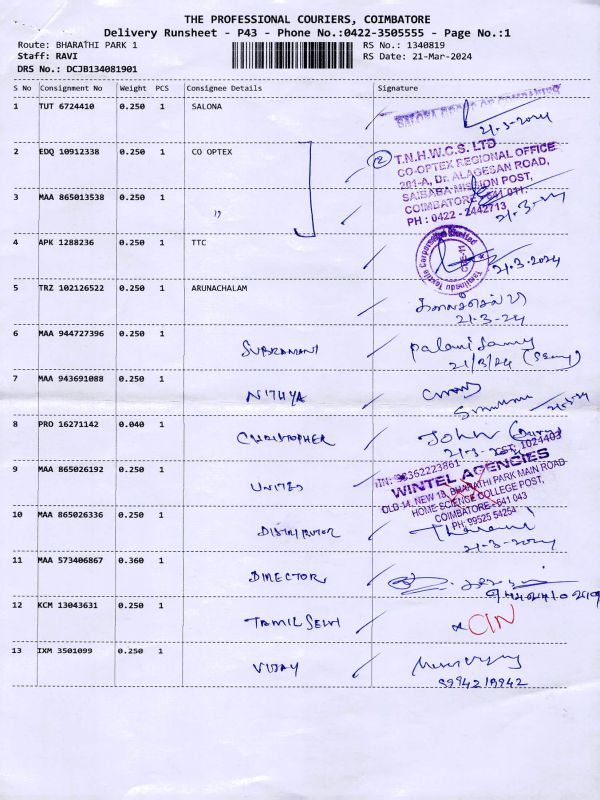 THE PROFESSIONAL COURIERS, COIMBATORE
Delivery Runsheet - P43 - Phone No.:0422-3505555 - Page No.:1
Route: BHARATHI PARK 1 RS No.: 1340819
Staff: RAVI RS Date: 21-Mar-2024
DRS No.: DCJB134081901
S No Consignment No Weight PCS Consignee Details Signature
1 TUT 6724410 0.250 1 SALONA
21-3-2024
2 EDQ 10912338 0.250 1 CO OPTEX
② T.N.H.W.C.S. LTD
CO-OPTEX REGIONAL OFFICE
201-A, Dr. ALAGESAN ROAD,
SAIBABA MISSION POST,
COIMBATORE - 641 011.
PH : 0422 - 2442713
3 MAA 865013538 0.250 1 "
21-3-24
4 APK 1288236 0.250 1 TTC
21-3-2024
5 TRZ 102126522 0.250 1 ARUNACHALAM
21-3-24
6 MAA 944727396 0.250 1 SUBRAMANI Palani Samy
21/3/24
7 MAA 943691088 0.250 1 NITHYA
21-3-24
8 PRO 16271142 0.040 1 CHRISTOPHER John
21-3-2024
9 MAA 865026192 0.250 1 UNITED
WINTEL AGENCIES
OLD 14, NEW 18, BHARATHI PARK MAIN ROAD
HOME SCIENCE COLLEGE POST,
COIMBATORE - 641 043
PH: 99525 54254
10 MAA 865026336 0.250 1 DISTRIBUTOR
21-3-2024
11 MAA 573406867 0.360 1 DIRECTOR
12 KCM 13043631 0.250 1 TAMIL SELVI CIN
13 IXM 3501099 0.250 1 VIJAY